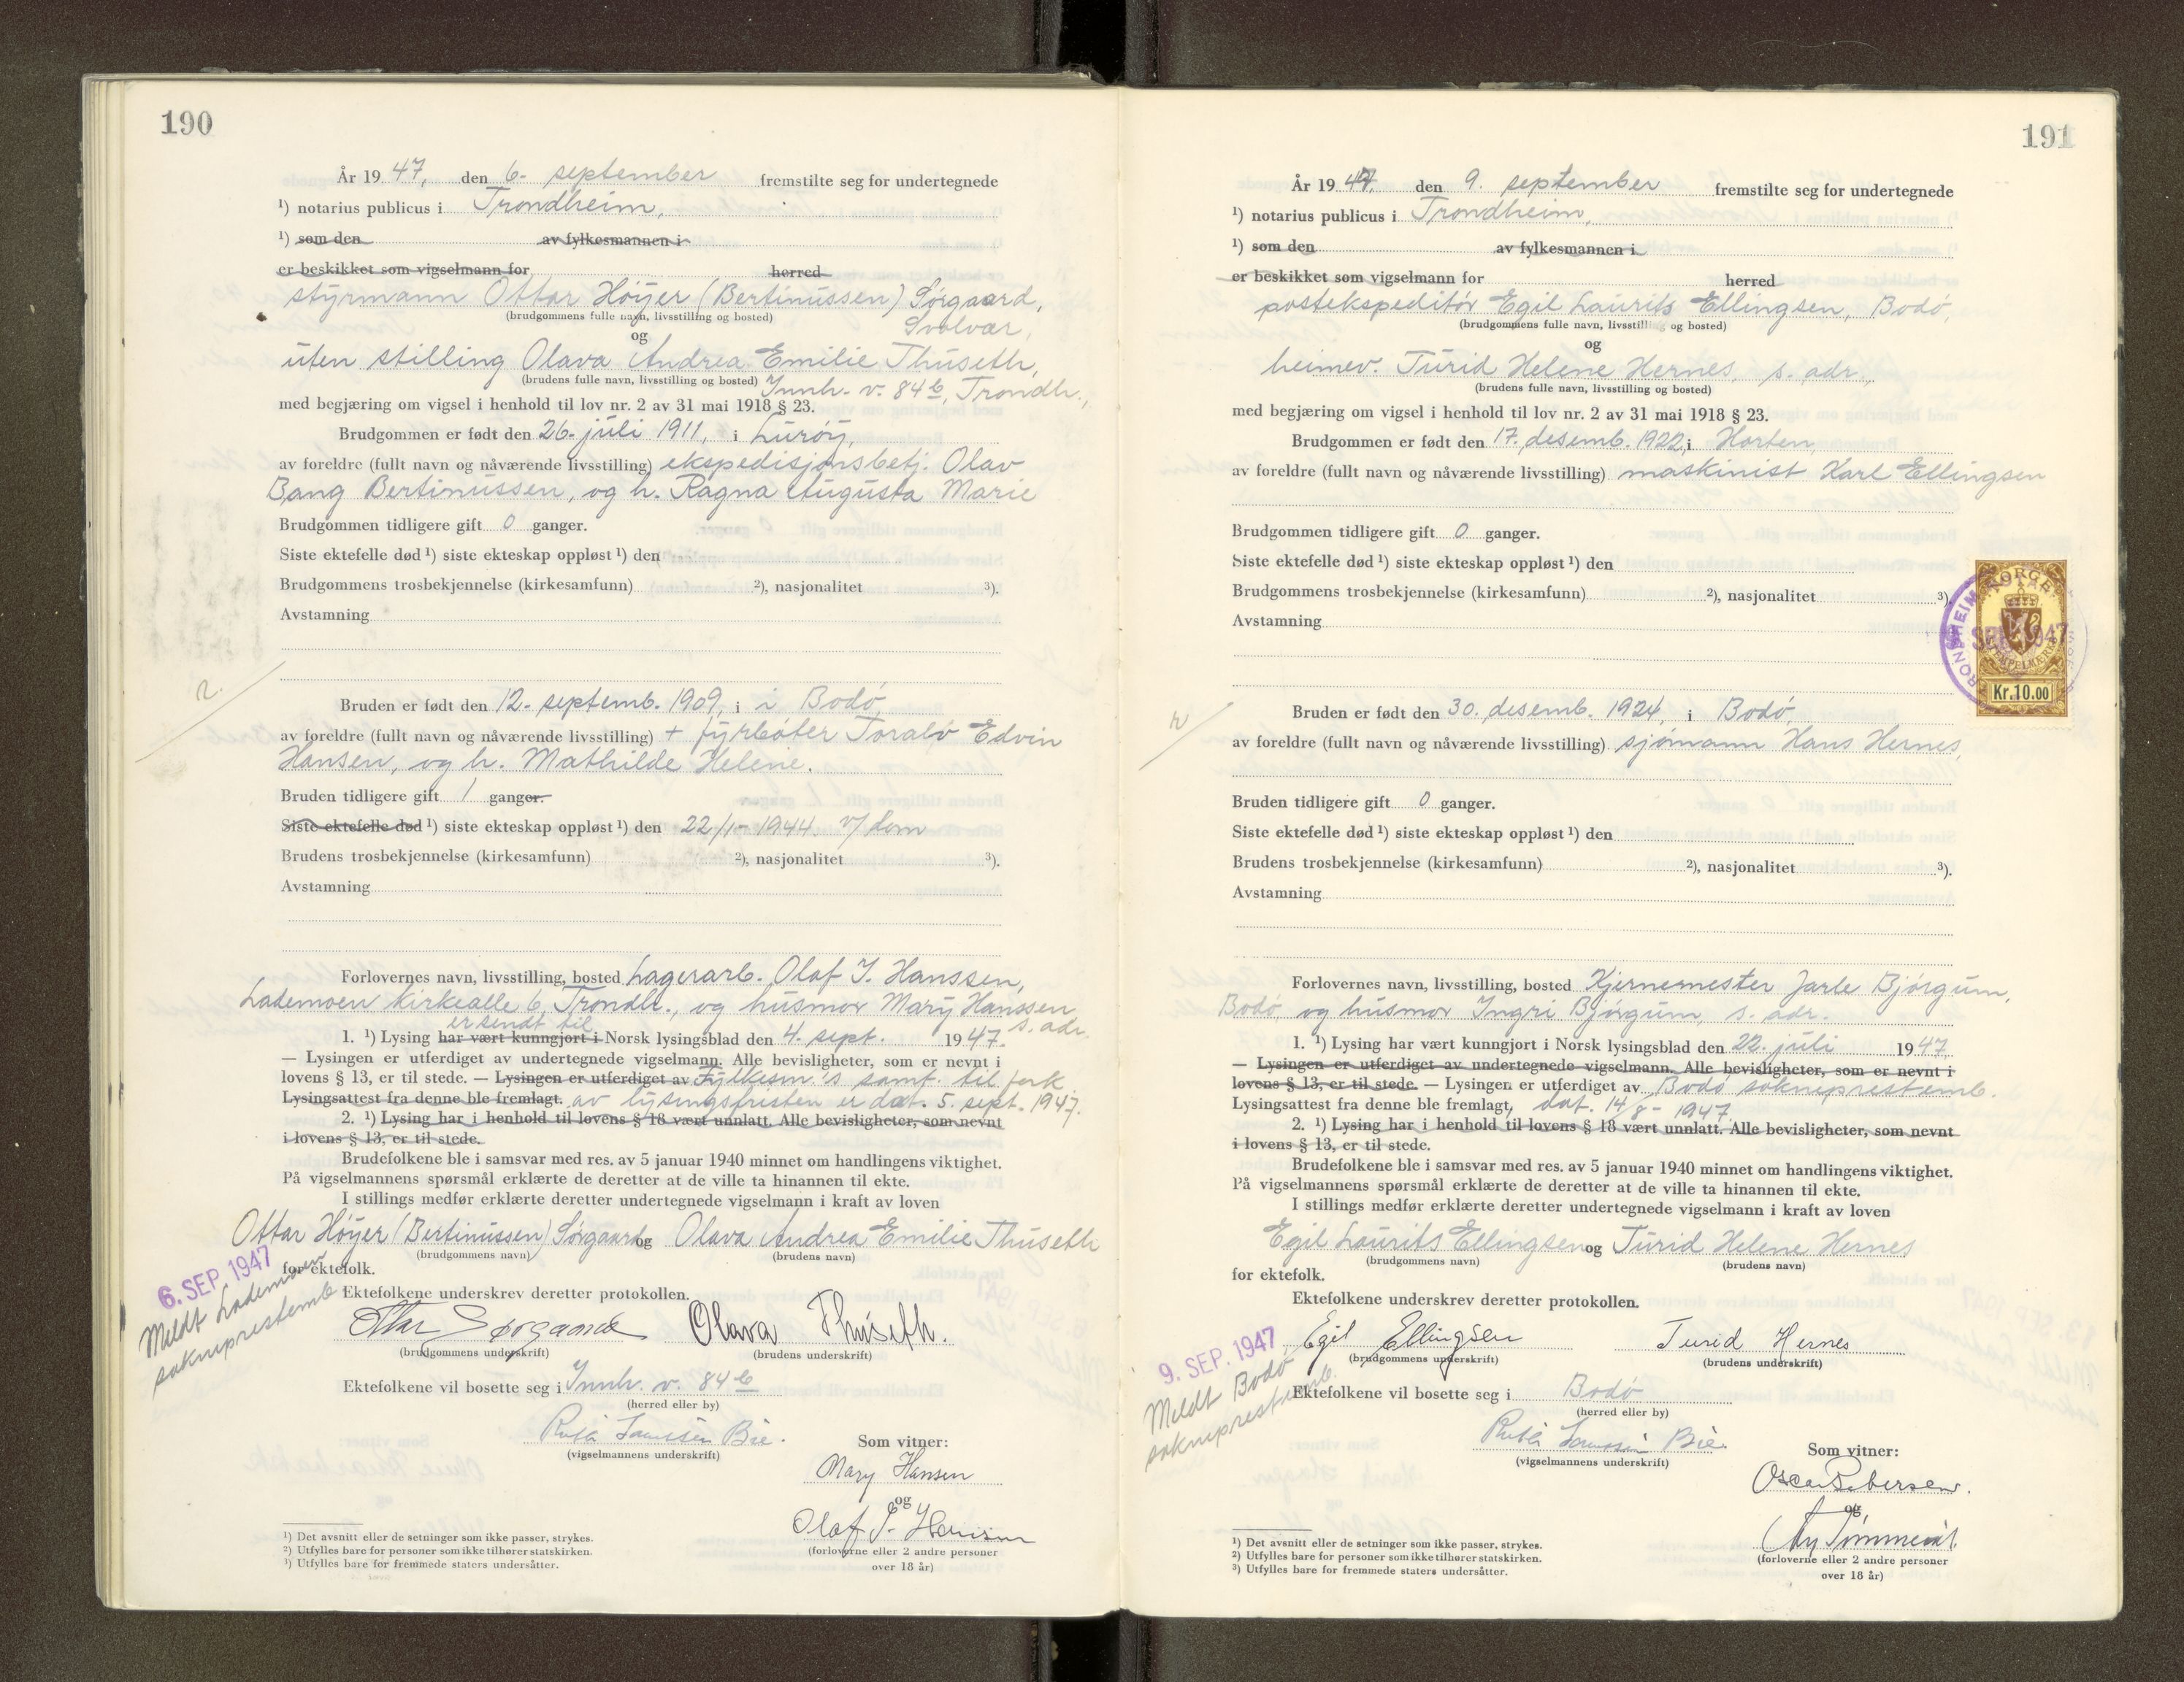 190
År 19 47, den 6. september fremstilte seg for undertegnede
¹) notarius publicus i Trondheim,
¹) som den av fylkesmannen i
er beskikket som vigselmann for herred
styrmann Ottar Höyer (Bertinussen) Sørgaard,
(brudgommens fulle navn, livsstilling og bosted) Svolvær,
og
uten stilling Olava Andrea Emilie Thuseth,
(brudens fulle navn, livsstilling og bosted) Innh. v. 84 b, Trondh.,
med begjæring om vigsel i henhold til lov nr. 2 av 31 mai 1918 § 23.
Brudgommen er født den 26. juli 1911, i Lurøy,
av foreldre (fullt navn og nåværende livsstilling) ekspedisjonsbetj. Olav
Bang Bertinussen, og h. Ragna Augusta Marie
Brudgommen tidligere gift 0 ganger.
Siste ektefelle død ¹) siste ekteskap oppløst ¹) den
Brudgommens trosbekjennelse (kirkesamfunn) ²), nasjonalitet ³).
Avstamning
Bruden er født den 12. septemb. 1909, i i Bodö,
av foreldre (fullt navn og nåværende livsstilling) + fyrböter Toralv Edvin
Hansen, og h. Mathilde Helene.
Bruden tidligere gift 1 ganger.
Siste ektefelle død ¹) siste ekteskap oppløst ¹) den 22/1- 1944. v/ dom
Brudens trosbekjennelse (kirkesamfunn) ²), nasjonalitet ³).
Avstamning
Forlovernes navn, livsstilling, bosted Lagerarb. Olaf I. Hanssen,
Lademoen kirkealle 6, Trondh., og husmor Mary Hanssen,
er sendt til s. adr.
1. ¹) Lysing har vært kunngjort i Norsk lysingsblad den 4. sept. 1947.
— Lysingen er utferdiget av undertegnede vigselmann. Alle bevisligheter, som er nevnt i
lovens § 13, er til stede. — Lysingen er utferdiget av Fylkesm.'s samt. til fork
Lysingsattest fra denne ble fremlagt. av lysingsfristen er dat. 5. sept. 1947.
2. ¹) Lysing har i henhold til lovens § 18 vært unnlatt. Alle bevisligheter, som nevnt
i lovens § 13, er til stede.
Brudefolkene ble i samsvar med res. av 5 januar 1940 minnet om handlingens viktighet.
På vigselmannens spørsmål erklærte de deretter at de ville ta hinannen til ekte.
I stillings medfør erklærte deretter undertegnede vigselmann i kraft av loven
Ottar Höyer (Bertinussen) Sørgaard og Olava Andrea Emilie Thuseth
(brudgommens navn) (brudens navn)
for ektefolk.
6. SEP. 1947
Meldt Lademoen
sokneprestemb.
Ektefolkene underskrev deretter protokollen.
Ottar Sørgaard Olava Thuseth.
(brudgommens underskrift) (brudens underskrift)
Ektefolkene vil bosette seg i Innh. v. 84 b
(herred eller by)
Bie.
(vigselmannens underskrift)
Som vitner:
Mary Hansen
og
Olaf I. Hanssen
(forloverne eller 2 andre personer
over 18 år)
¹) Det avsnitt eller de setninger som ikke passer, strykes.
²) Utfylles bare for personer som ikke tilhører statskirken.
³) Utfylles bare for fremmede staters undersåtter.
191
År 19 47. den 9. september fremstilte seg for undertegnede
¹) notarius publicus i Trondheim,
¹) som den av fylkesmannen i
er beskikket som vigselmann for herred
postekspeditör Egil Laurits Ellingsen, Bodö,
(brudgommens fulle navn, livsstilling og bosted)
og
heimev. Turid Helene Hernes, s. adr.,
(brudens fulle navn, livsstilling og bosted)
med begjæring om vigsel i henhold til lov nr. 2 av 31 mai 1918 § 23.
Brudgommen er født den 17. desemb. 1922, i Horten,
av foreldre (fullt navn og nåværende livsstilling) maskinist Karl Ellingsen
Brudgommen tidligere gift 0 ganger.
Siste ektefelle død ¹) siste ekteskap oppløst ¹) den
Brudgommens trosbekjennelse (kirkesamfunn) ²), nasjonalitet ³).
Avstamning
NORGE
STEMPELMERKE
Kr.10.00
TRONDHEIM
SEP. 1947
Bruden er født den 30. desemb. 1924, i Bodö,
av foreldre (fullt navn og nåværende livsstilling) sjömann Hans Hernes,
Bruden tidligere gift 0 ganger.
Siste ektefelle død ¹) siste ekteskap oppløst ¹) den
Brudens trosbekjennelse (kirkesamfunn) ²), nasjonalitet ³).
Avstamning
Forlovernes navn, livsstilling, bosted Kjernemester Jarle Bjørgum,
Bodö, og husmor Ingri Bjørgum, s. adr.
1. ¹) Lysing har vært kunngjort i Norsk lysingsblad den 22. juli 1947
— Lysingen er utferdiget av undertegnede vigselmann. Alle bevisligheter, som er nevnt i
lovens § 13, er til stede. — Lysingen er utferdiget av Bodö sokneprestemb.
Lysingsattest fra denne ble fremlagt, dat. 14/8- 1947.
2. ¹) Lysing har i henhold til lovens § 18 vært unnlatt. Alle bevisligheter, som nevnt
i lovens § 13, er til stede.
Brudefolkene ble i samsvar med res. av 5 januar 1940 minnet om handlingens viktighet.
På vigselmannens spørsmål erklærte de deretter at de ville ta hinannen til ekte.
I stillings medfør erklærte deretter undertegnede vigselmann i kraft av loven
Egil Laurits Ellingsen og Turid Helene Hernes
(brudgommens navn) (brudens navn)
for ektefolk.
Ektefolkene underskrev deretter protokollen.
9. SEP. 1947
Meldt Bodö
sokneprestemb.
Egil Ellingsen Turid Hernes
(brudgommens underskrift) (brudens underskrift)
Ektefolkene vil bosette seg i Bodö
(herred eller by)
Bie.
(vigselmannens underskrift)
Som vitner:
Oscar Pebersen.
og
(forloverne eller 2 andre personer
over 18 år)
¹) Det avsnitt eller de setninger som ikke passer, strykes.
²) Utfylles bare for personer som ikke tilhører statskirken.
³) Utfylles bare for fremmede staters undersåtter.